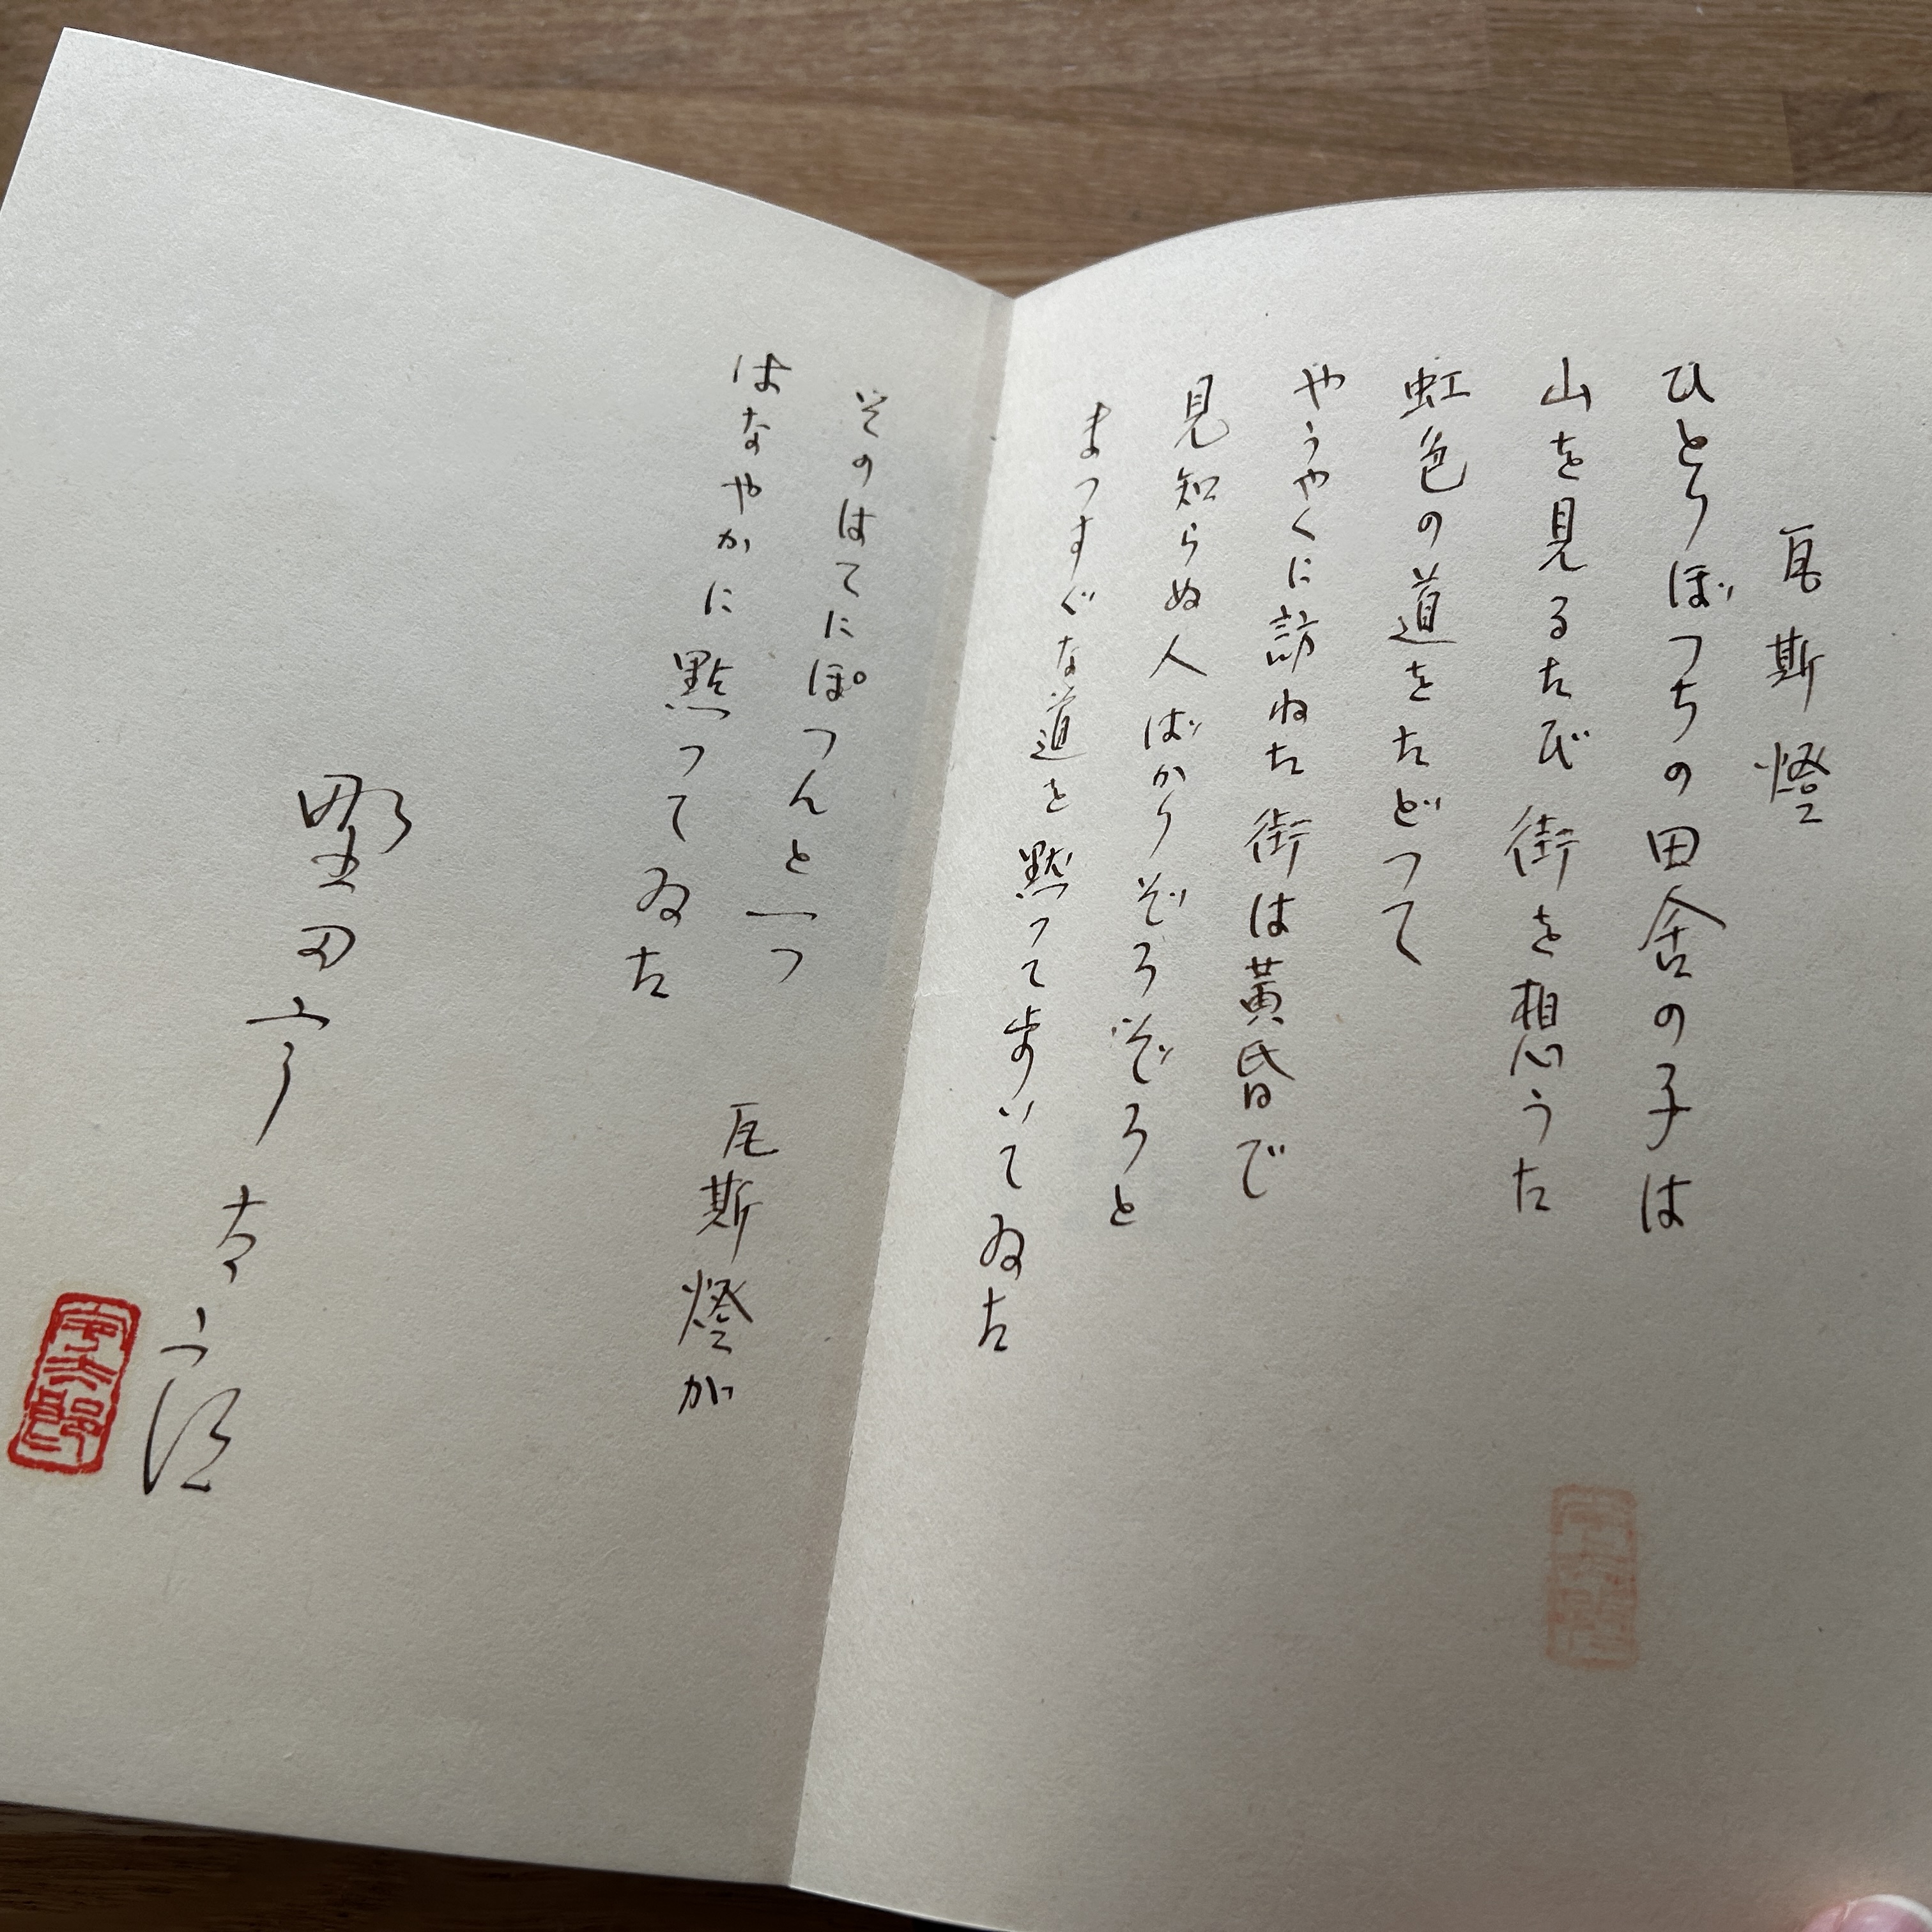 瓦斯燈
ひとりぼつちの田舎の子は
山を見るたび街を想うた
虹色の道をたどつて
やうやくに訪ねた街は黄昏で
見知らぬ人ばかりぞろぞろと
まつすぐな道を黙つて歩いてゐた
そのはてにぽつんと一つ
瓦斯燈が
はなやかに點つてゐた
野田宇太郎
宇太郎